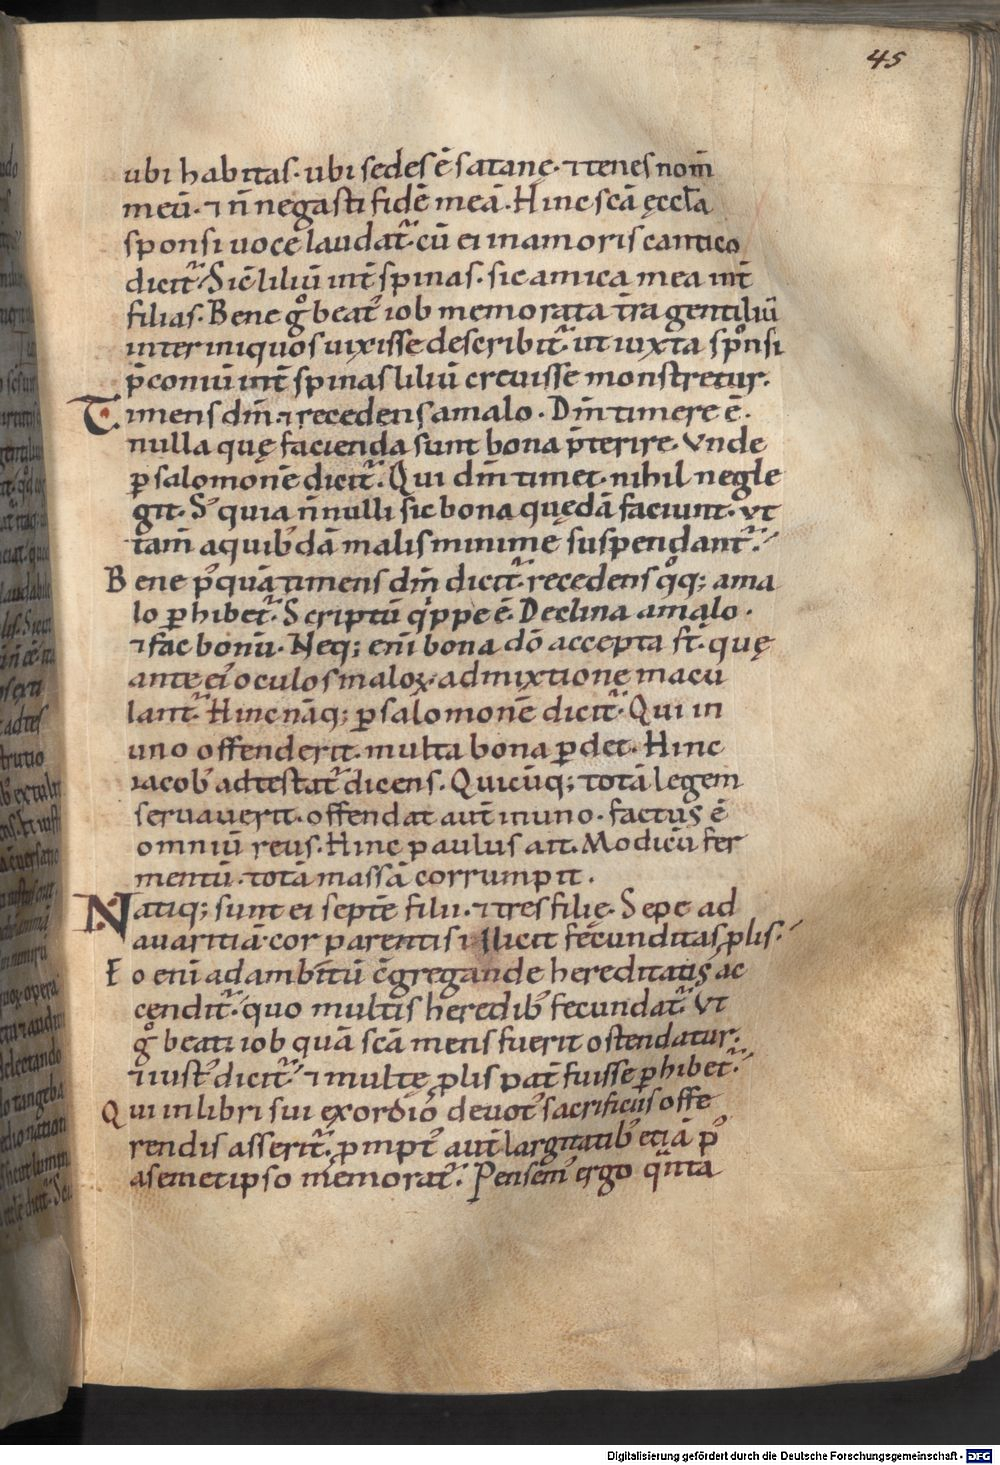 45
ubi habitas· ubi sedes ē satanę· ⁊ tenes nom̄
meū· ⁊ n̄ negasti fidē meā· Hinc scā ęccla
sponsi uoce laudat᷑· cū ei in amoris cantico
dicit᷑· Sic̄ liliū int̄ spinas· sic amica mea int̄
filias· Bene gͦ beat᷒ iob memorata tr̄a gentiliū
inter iniquos uixisse describit᷑· ut iuxta spōnsi
p̄coniū int̄ spinas liliū creuisse monstretur.
Timens dm̄· ⁊ recedens a malo· Dm̄ timere ē·
nulla quę facienda sunt bona p̄terire· Vnde
ꝑ salomonē dicit᷑· Qui dm̄ timet· nihil negle
git· S᷒ quia n̄nulli sic bona quędā faciunt· vt
tam̄ a quibꝰdā malis minime suspendant᷑·
Bene pꝰquā timens dm̄ dicit᷑· recedens qͦq; a ma
lo ꝑhibet᷑· Scriptū qͥppe ē· Declina a malo·
⁊ fac bonū· Neq; eni bona dō accepta st̄· quę
ante eiꝰ oculos maloꝝ admixtione macu
lant᷑· Hinc nāq; ꝑ salomonē dicit᷑· Qui in
uno offenderit· multa bona ꝑdet· Hinc
iacobꝰ adtestat᷑ dicens· Quicūq; totā legem
seruauerit· offendat aut̄ in uno· factus ē
omniū reus· Hinc paulus ait· Modicū fer
mentū· totā massā corrumpit·
Natiq; sunt ei septē filii· ⁊ tres filię· Sepe ad
auaritiā· cor parentis illicit fecunditas ꝓlis·
Eo eni ad ambitū c̄gregande hereditatis ac
cendit᷑· quo multis heredibꝰ fecundat᷑· Vt
gͦ beati iob quā scā mens fuerit ostendatur·
⁊ iustꝰ dicit᷑· ⁊ multę ꝓlis pat̄ fuisse ꝑhibet᷑·
Qui in libri sui exordio deuotꝰ sacrificiis offe
rendis asserit᷑· ꝓmptꝰ aut̄ largitatibꝰ etiā pꝰ
a semetipso memorat᷑· Pensemꝰ ergo qͣnta
Digitalisierung gefördert durch die Deutsche Forschungsgemeinschaft - DFG